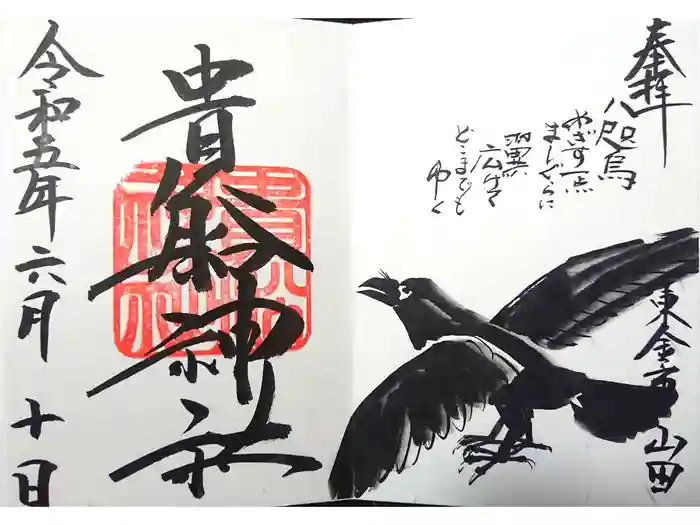 奉拝
八咫烏
めざす一点
ましぐらに
翼
広げて
どこまでも
ゆく
東金市山田
貴船神社
令和五年六月十日